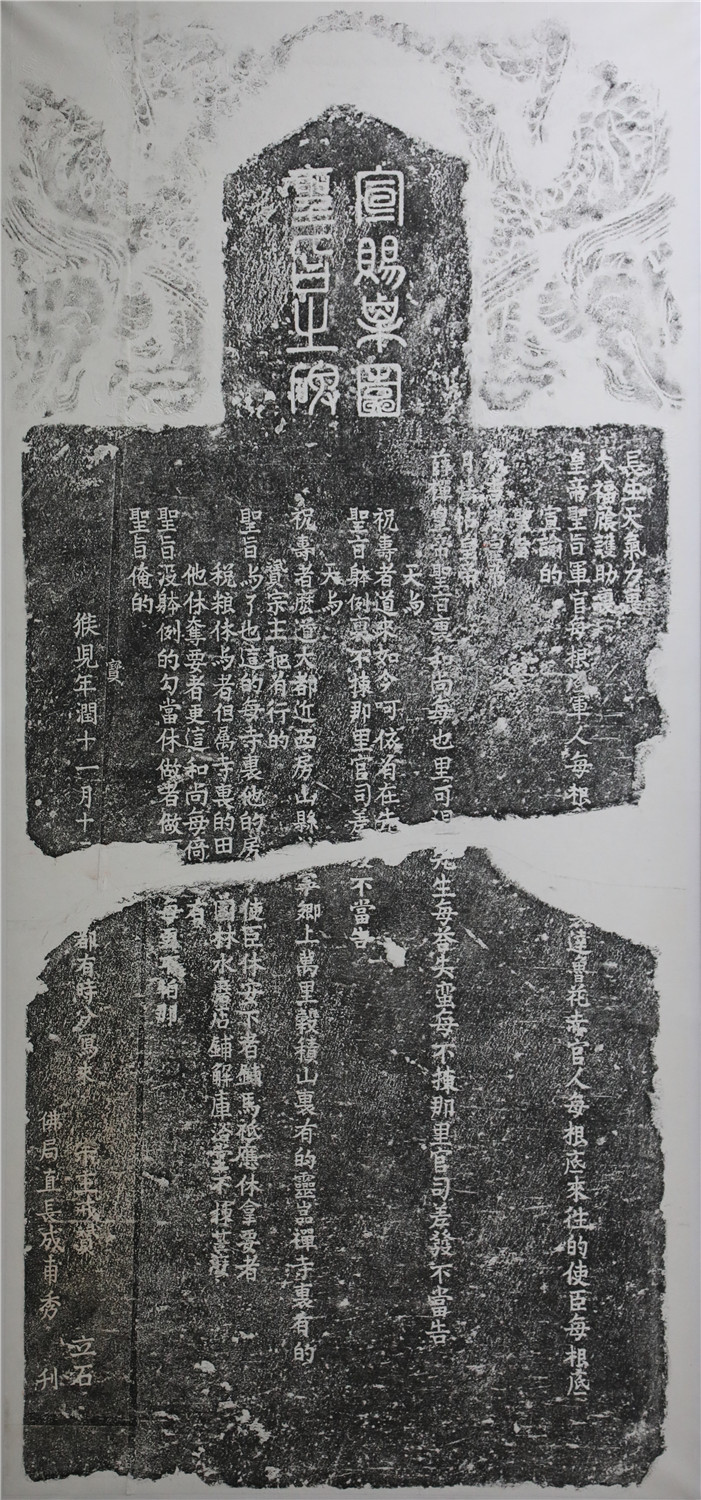 宣賜栗園
聖旨之碑
長生天氣力裏
大福廕護助裏
皇帝聖旨軍官每根底軍人每根
達魯花赤官人每根底來往的使臣每根底
宣諭的
聖旨
月古台皇帝
薛禪皇帝聖旨裏和尚每也里可溫
先生每答失蠻每不揀那里官司差發不當告
天与
祝壽者道來如今呵依着在先
聖旨躰例裏不揀那里官司差
不當告
天与
祝壽者麽道大都近西房山縣
鄉上萬里穀積山裏有的靈嵓禪寺裏有的
贇宗主把着行的
聖旨与了也這的每寺裏他的房
使臣休安下者鋪馬祗應休拿要者
稅粮休与者但屬寺裏的田
園林水磨店鋪解庫浴堂不揀甚麽
他休奪要者更這和尚每倚着
聖旨沒躰例的勾當休做者做
每更不怕那
聖旨俺的
猴兒年潤十一月十
都有時分寫來
宗主戒贇 立石
佛局直長成甫秀 刊